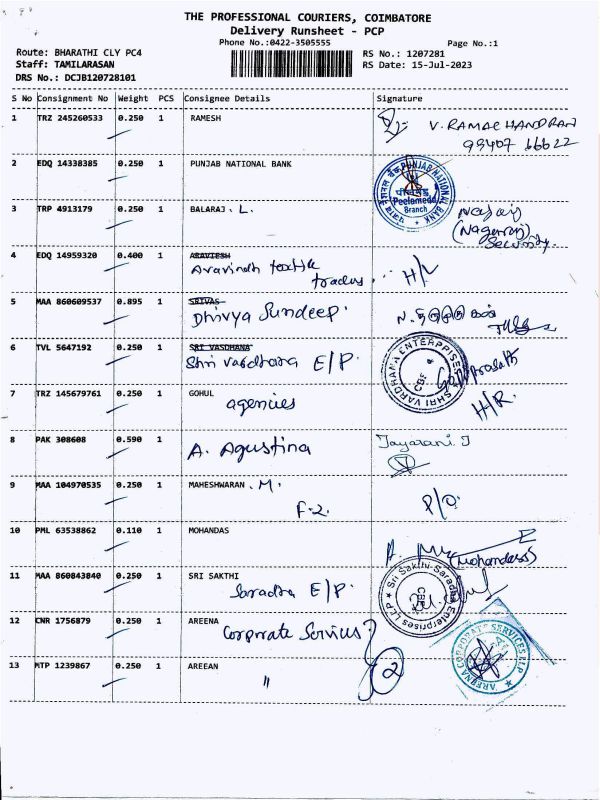 THE PROFESSIONAL COURIERS, COIMBATORE
Delivery Runsheet - PCP
Phone No.:0422-3505555
Page No.:1
Route: BHARATHI CLY PC4
RS No.: 1207281
Staff: TAMILARASAN
RS Date: 15-Jul-2023
DRS No.: DCJB120728101
S No Consignment No Weight PCS Consignee Details Signature
1 TRZ 245260533 0.250 1 RAMESH
V. RAMACHANDRAN
99407 66622
2 EDQ 14338385 0.250 1 PUNJAB NATIONAL BANK
PUNJAB NATIONAL BANK
Peelamedu
Branch
3 TRP 4913179 0.250 1 BALARAJ. L.
(Nagaraj)
Security.
4 EDQ 14959320 0.400 1
Aravindh textile
traders
H/L
5 MAA 860609537 0.895 1 SRIVAS
Dhivya Sundeep.
6 TVL 5647192 0.250 1 SRI VASDHANA
Shri Vardhana E/P.
SHRI VARDHANA ENTERPRISES
CBE
7 TRZ 145679761 0.250 1 GOHUL
agencies
H/R.
8 PAK 308608 0.590 1
A. Agustina
Jayarani. J
9 MAA 104970535 0.250 1 MAHESHWARAN. M.
F-2.
P/O.
10 PML 63538862 0.110 1 MOHANDAS
(Mohandass)
11 MAA 860843840 0.250 1 SRI SAKTHI
Saradha E/P.
Sri Sakthi-Saradha Enterprises LLP
CBE
12 CNR 1756879 0.250 1 AREENA
Corporate Services
AREENA CORPORATE SERVICES LLP
13 MTP 1239867 0.250 1 AREEAN
"
2